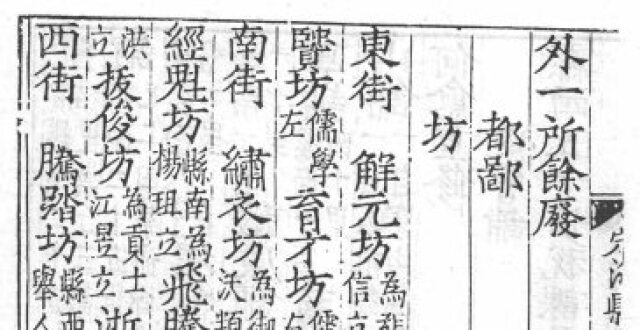 外一所餘廢
都鄙
坊
東街 解元坊為
信立
贒坊儒學
左育才坊儒
右
南街 繡衣坊為御
經魁坊縣南為
楊玨立飛騰
洪
立拔俊坊為貢士
江昱立逝
西街 騰踏坊縣西
舉人